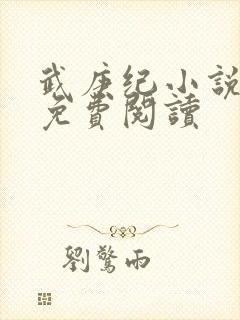 武庚纪小說
免費閱讀
劉驚雨